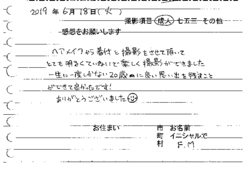 2019年 6月 18日(火)
撮影項目 成人 七五三 その他
感想をお願いします
ヘアメイクから着付と撮影をさせて頂いて
とても明るくていねいで楽しく撮影ができました
一生に一度しかない20歳に良い思い出を残すこと
ができて良かったです!
ありがとうございました
お住まい 市 お名前
町 イニシャルで
村 F.M